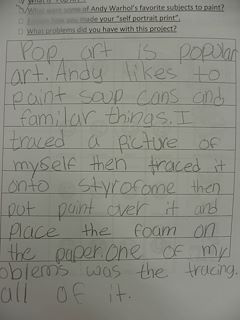 What some of Andy Warhol's favorite subjects to paint?
how you made your "self portrait print".
What problems did you have with this project?
Pop art is popular
art. Andy likes to
paint soup cans and
familar things. I
traced a picture of
myself then traced it
onto styrofome then
put paint over it and
place the foam on
the paper. One of my
oblems was the tracing.
all of it.